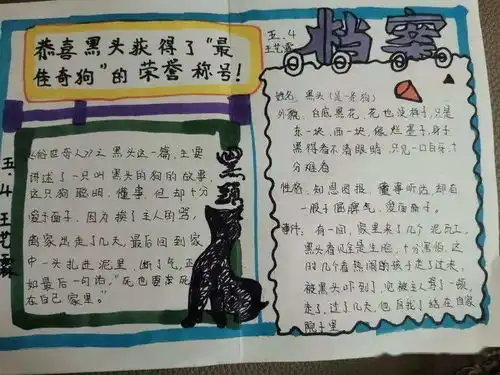 恭喜黑头获得了“最
佳奇狗”的荣誉称号！
五.4
王艺霏
档案
《俗世奇人》之黑头这一篇,主要
讲述了一只叫黑头的狗的故事,
这只狗聪明、懂事,但却十分
爱面子,因为挨了主人的骂,
离家出走了几天,最后回到家
中一头扎进泥里,断了气,正
如最后一句话:“死也要死
在自己家里。”
黑頭
五.4王艺霏
姓名:黑头(是一条狗)
外貌:白底黑花,花也没样子,只是
东一块,西一块,像烂墨子,身子
黑得看不清眼睛,只见一口白牙,十
分难看
性格:知恩图报、懂事听话,却有
一股子倔脾气,爱面子。
事件:有一间,家里来了几个泥瓦工,
黑头看见全是生脸,十分害怕,这
时几个看热闹的孩子走了过来,
被黑头吓到了,它被主人骂了一顿,
走了,过了几天,他自我了结在自家
院子里